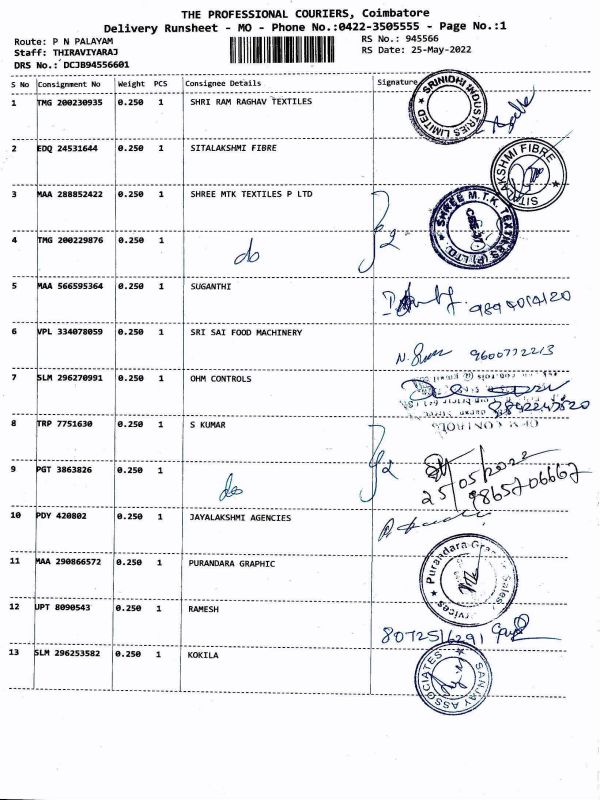 THE PROFESSIONAL COURIERS, Coimbatore
Delivery Runsheet - MO - Phone No.:0422-3505555 - Page No.:1
Route: P N PALAYAM
RS No.: 945566
Staff: THIRAVIYARAJ
RS Date: 25-May-2022
DRS No.: DCJB94556601
S No Consignment No Weight PCS Consignee Details Signature
1 TMG 200230935 0.250 1 SHRI RAM RAGHAV TEXTILES
SRINIDHI INDUSTRIES LIMITED
2 EDQ 24531644 0.250 1 SITALAKSHMI FIBRE
SITALAKSHMI FIBRE
3 MAA 288852422 0.250 1 SHREE MTK TEXTILES P LTD
SHREE M.T.K. TEXTILES (P) LTD.
CBE
4 TMG 200229876 0.250 1
do 2
5 MAA 566595364 0.250 1 SUGANTHI
6 VPL 334078059 0.250 1 SRI SAI FOOD MACHINERY
9600772213
7 SLM 296270991 0.250 1 OHM CONTROLS
OHM CONTROLS
8 TRP 7751630 0.250 1 S KUMAR
25/05/2022
9 PGT 3863826 0.250 1
do 2
9865706667
10 PDY 420802 0.250 1 JAYALAKSHMI AGENCIES
11 MAA 290866572 0.250 1 PURANDARA GRAPHIC
12 UPT 8090543 0.250 1 RAMESH
8072516291
13 SLM 296253582 0.250 1 KOKILA
SANJAY ASSOCIATES